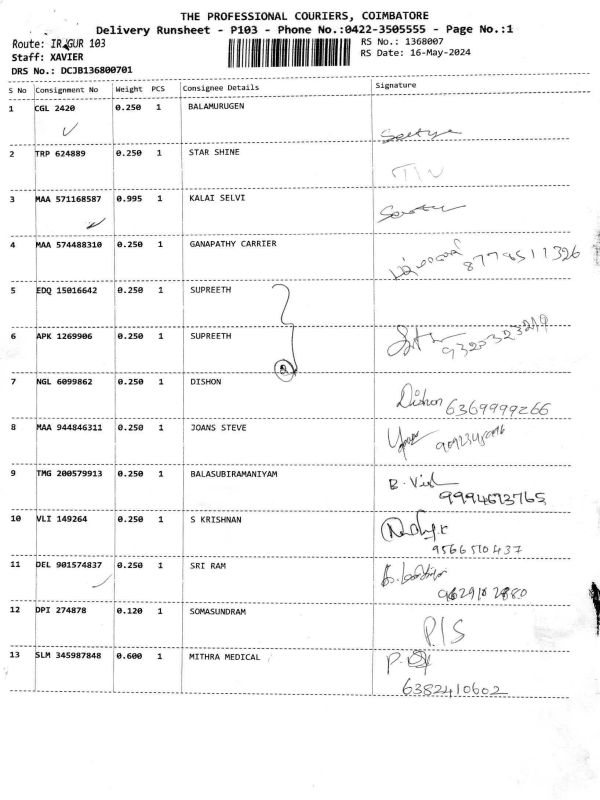 THE PROFESSIONAL COURIERS, COIMBATORE
Delivery Runsheet - P103 - Phone No.:0422-3505555 - Page No.:1
Route: IRUGUR 103
RS No.: 1368007
Staff: XAVIER
RS Date: 16-May-2024
DRS No.: DCJB136800701
S No Consignment No Weight PCS Consignee Details Signature
1 CGL 2420 0.250 1 BALAMURUGEN
2 TRP 624889 0.250 1 STAR SHINE
3 MAA 571168587 0.995 1 KALAI SELVI
4 MAA 574488310 0.250 1 GANAPATHY CARRIER
8778511326
5 EDQ 15016642 0.250 1 SUPREETH
6 APK 1269906 0.250 1 SUPREETH
2
7 NGL 6099862 0.250 1 DISHON
Dishon 6369999266
8 MAA 944846311 0.250 1 JOANS STEVE
9 TMG 200579913 0.250 1 BALASUBIRAMANIYAM
9994673765
10 VLI 149264 0.250 1 S KRISHNAN
9566510437
11 DEL 901574837 0.250 1 SRI RAM
12 DPI 274878 0.120 1 SOMASUNDRAM
P/S
13 SLM 345987848 0.600 1 MITHRA MEDICAL
6382410602